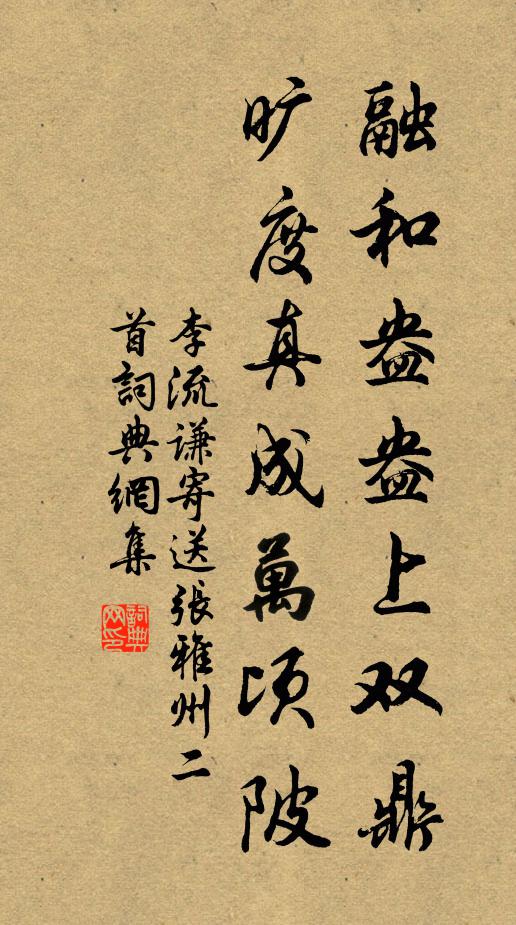 融和盎盎上双鼎
旷度真成萬顷陂
李流谦寄送張雅州二
首詞典網集
詞典
网印